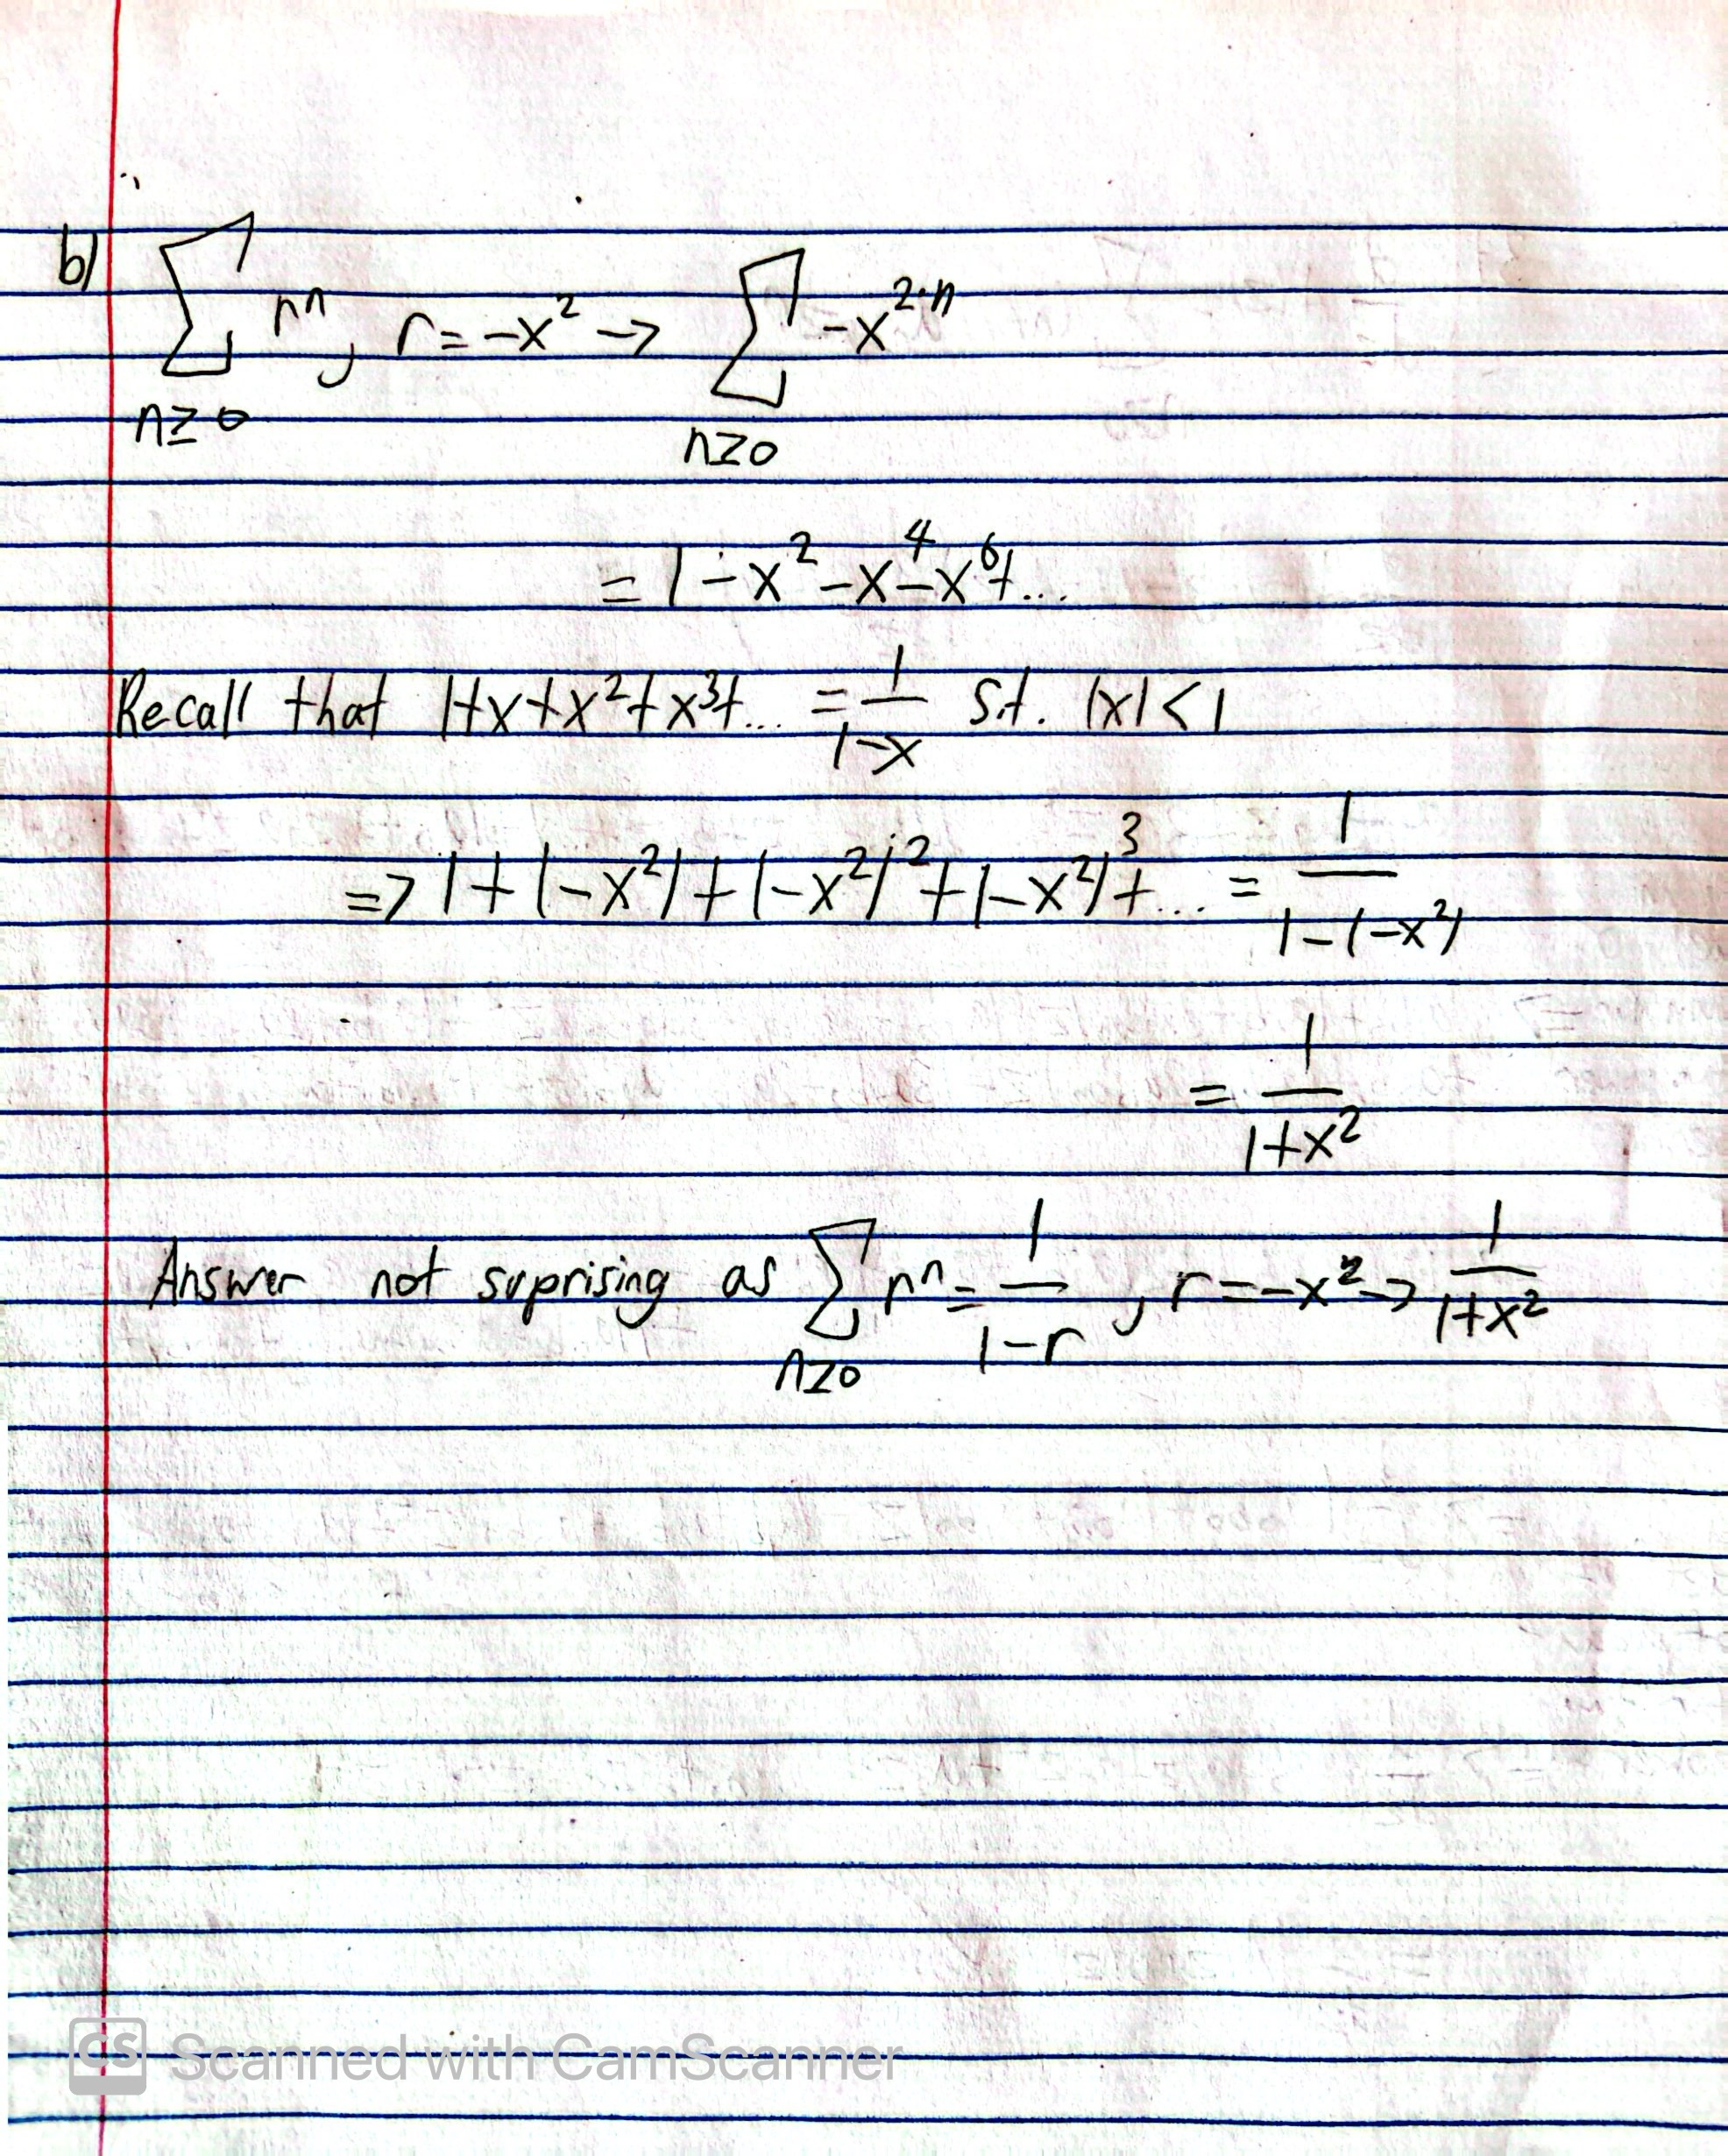 b) ∑ rⁿ, r = -x² → ∑ -x^{2·n}
n≥0 n≥0
= 1 - x² - x⁴ - x⁶ + ...
Recall that 1+x+x²+x³+... = 1/(1-x) s.t. |x| < 1
=> 1 + (-x²) + (-x²)² + (-x²)³ + ... = 1/(1-(-x²))
= 1/(1+x²)
Answer not suprising as ∑ rⁿ = 1/(1-r), r = -x² → 1/(1+x²)
n≥0
CS Scanned with CamScanner